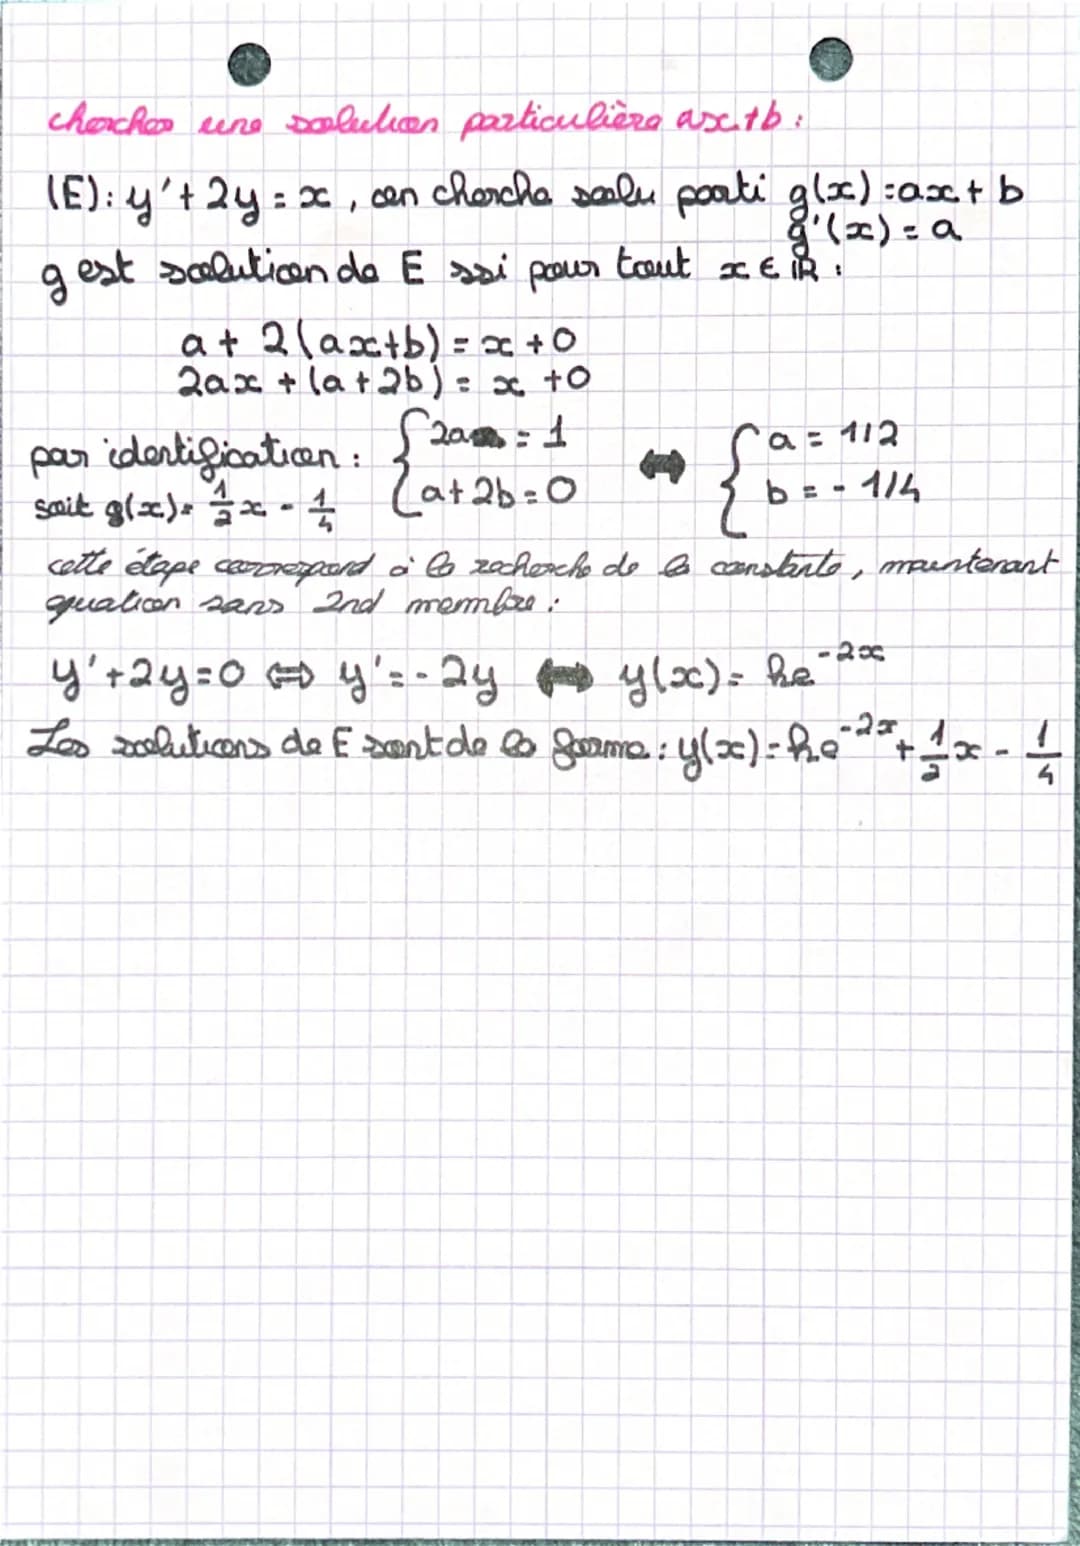 chercher une solution particulière ax+b :
(E): y' + 2y = x , on cherche solu parti g(x) = ax + b
g'(x) = a
g est solution de E ssi pour tout x ∈ ℝ :
a + 2(ax+b) = x + 0
2ax + (a + 2b) = x + 0
par identification : { 2a = 1 ⇔ { a = 1/2
a + 2b = 0 b = - 1/4
soit g(x) = 1/2 x - 1/4
cette étape correspond à la recherche de la constante, maintenant
équation sans 2nd membre :
y' + 2y = 0 ⇔ y' = - 2y ⇔ y(x) = ke^{-2x}
Les solutions de E sont de la forme : y(x) = ke^{-2x} + 1/2 x - 1/4